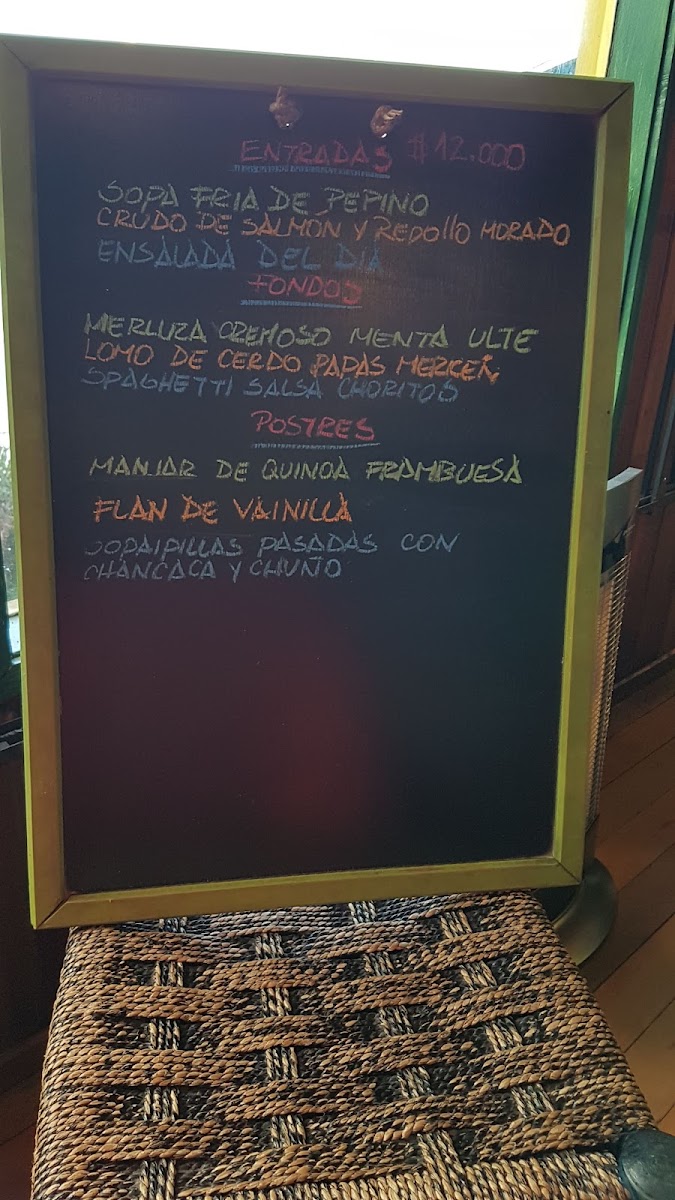 ENTRADAS $12.000
SOPA FRIA DE PEPINO
CRUDO DE SALMON Y REPOLLO MORADO
ENSALADA DEL DIA
FONDOS
MERLUZA CREMOSO MENTA ULTE
LOMO DE CERDO PAPAS MERKEN
SPAGHETTI SALSA CHORITOS
POSTRES
MANJAR DE QUINOA FRAMBUESA
FLAN DE VAINILLA
SOPAIPILLAS PASADAS CON
CHANCACA Y CHUÑO